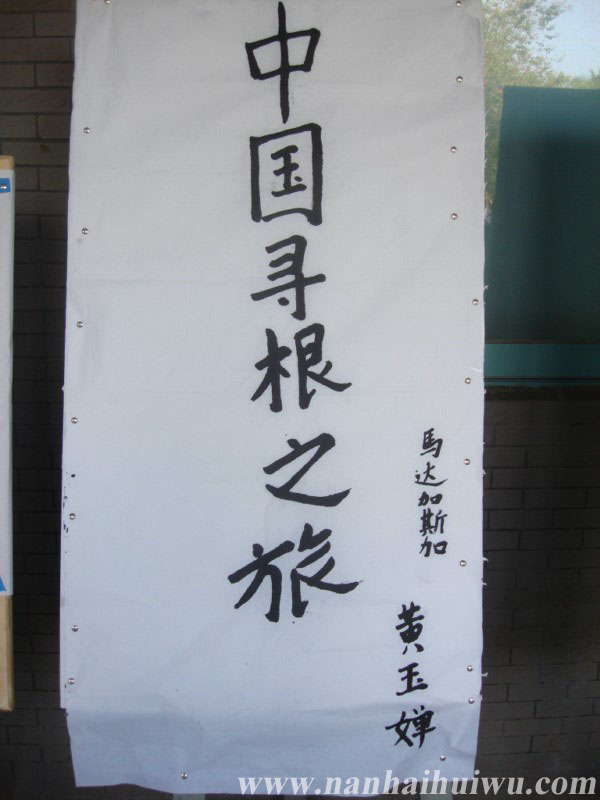 中国寻根之旅
馬达加斯加
黄玉婵
www.nanhaihuiwu.com